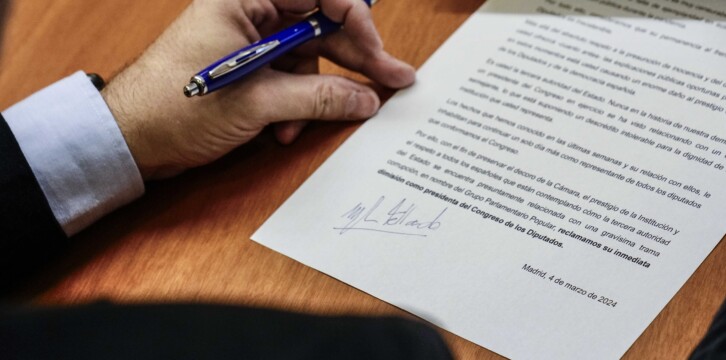 su permanencia al
de Presidenta.
Más allá del absoluto respeto a la presunción de inocencia a
usted ofrezca cuanto antes las explicaciones públicas oportunas
estos momentos está usted causando un enorme daño al prestigio
de los Diputados y de la democracia española.
Es usted la tercera autoridad del Estado. Nunca en la historia de nuestra
un presidente del Congreso en ejercicio se ha visto relacionado con un
semejante, lo que está suponiendo un descrédito intolerable para la dignidad de
institución que usted representa.
Los hechos que hemos conocido en las últimas semanas y su relación con ellos, le
inhabilitan para continuar un solo día más como representante de todos los diputados
que conformamos el Congreso.
Por ello, con el fin de preservar el decoro de la Cámara, el prestigio de la Institución y
el respeto a todos los españoles que están contemplando cómo la tercera autoridad
del Estado, se encuentra presuntamente relacionada con una gravísima trama
corrupción, en nombre del Grupo Parlamentario Popular, reclamamos su inmediata
dimisión como presidenta del Congreso de los Diputados.
Madrid, 4 de marzo de 2024